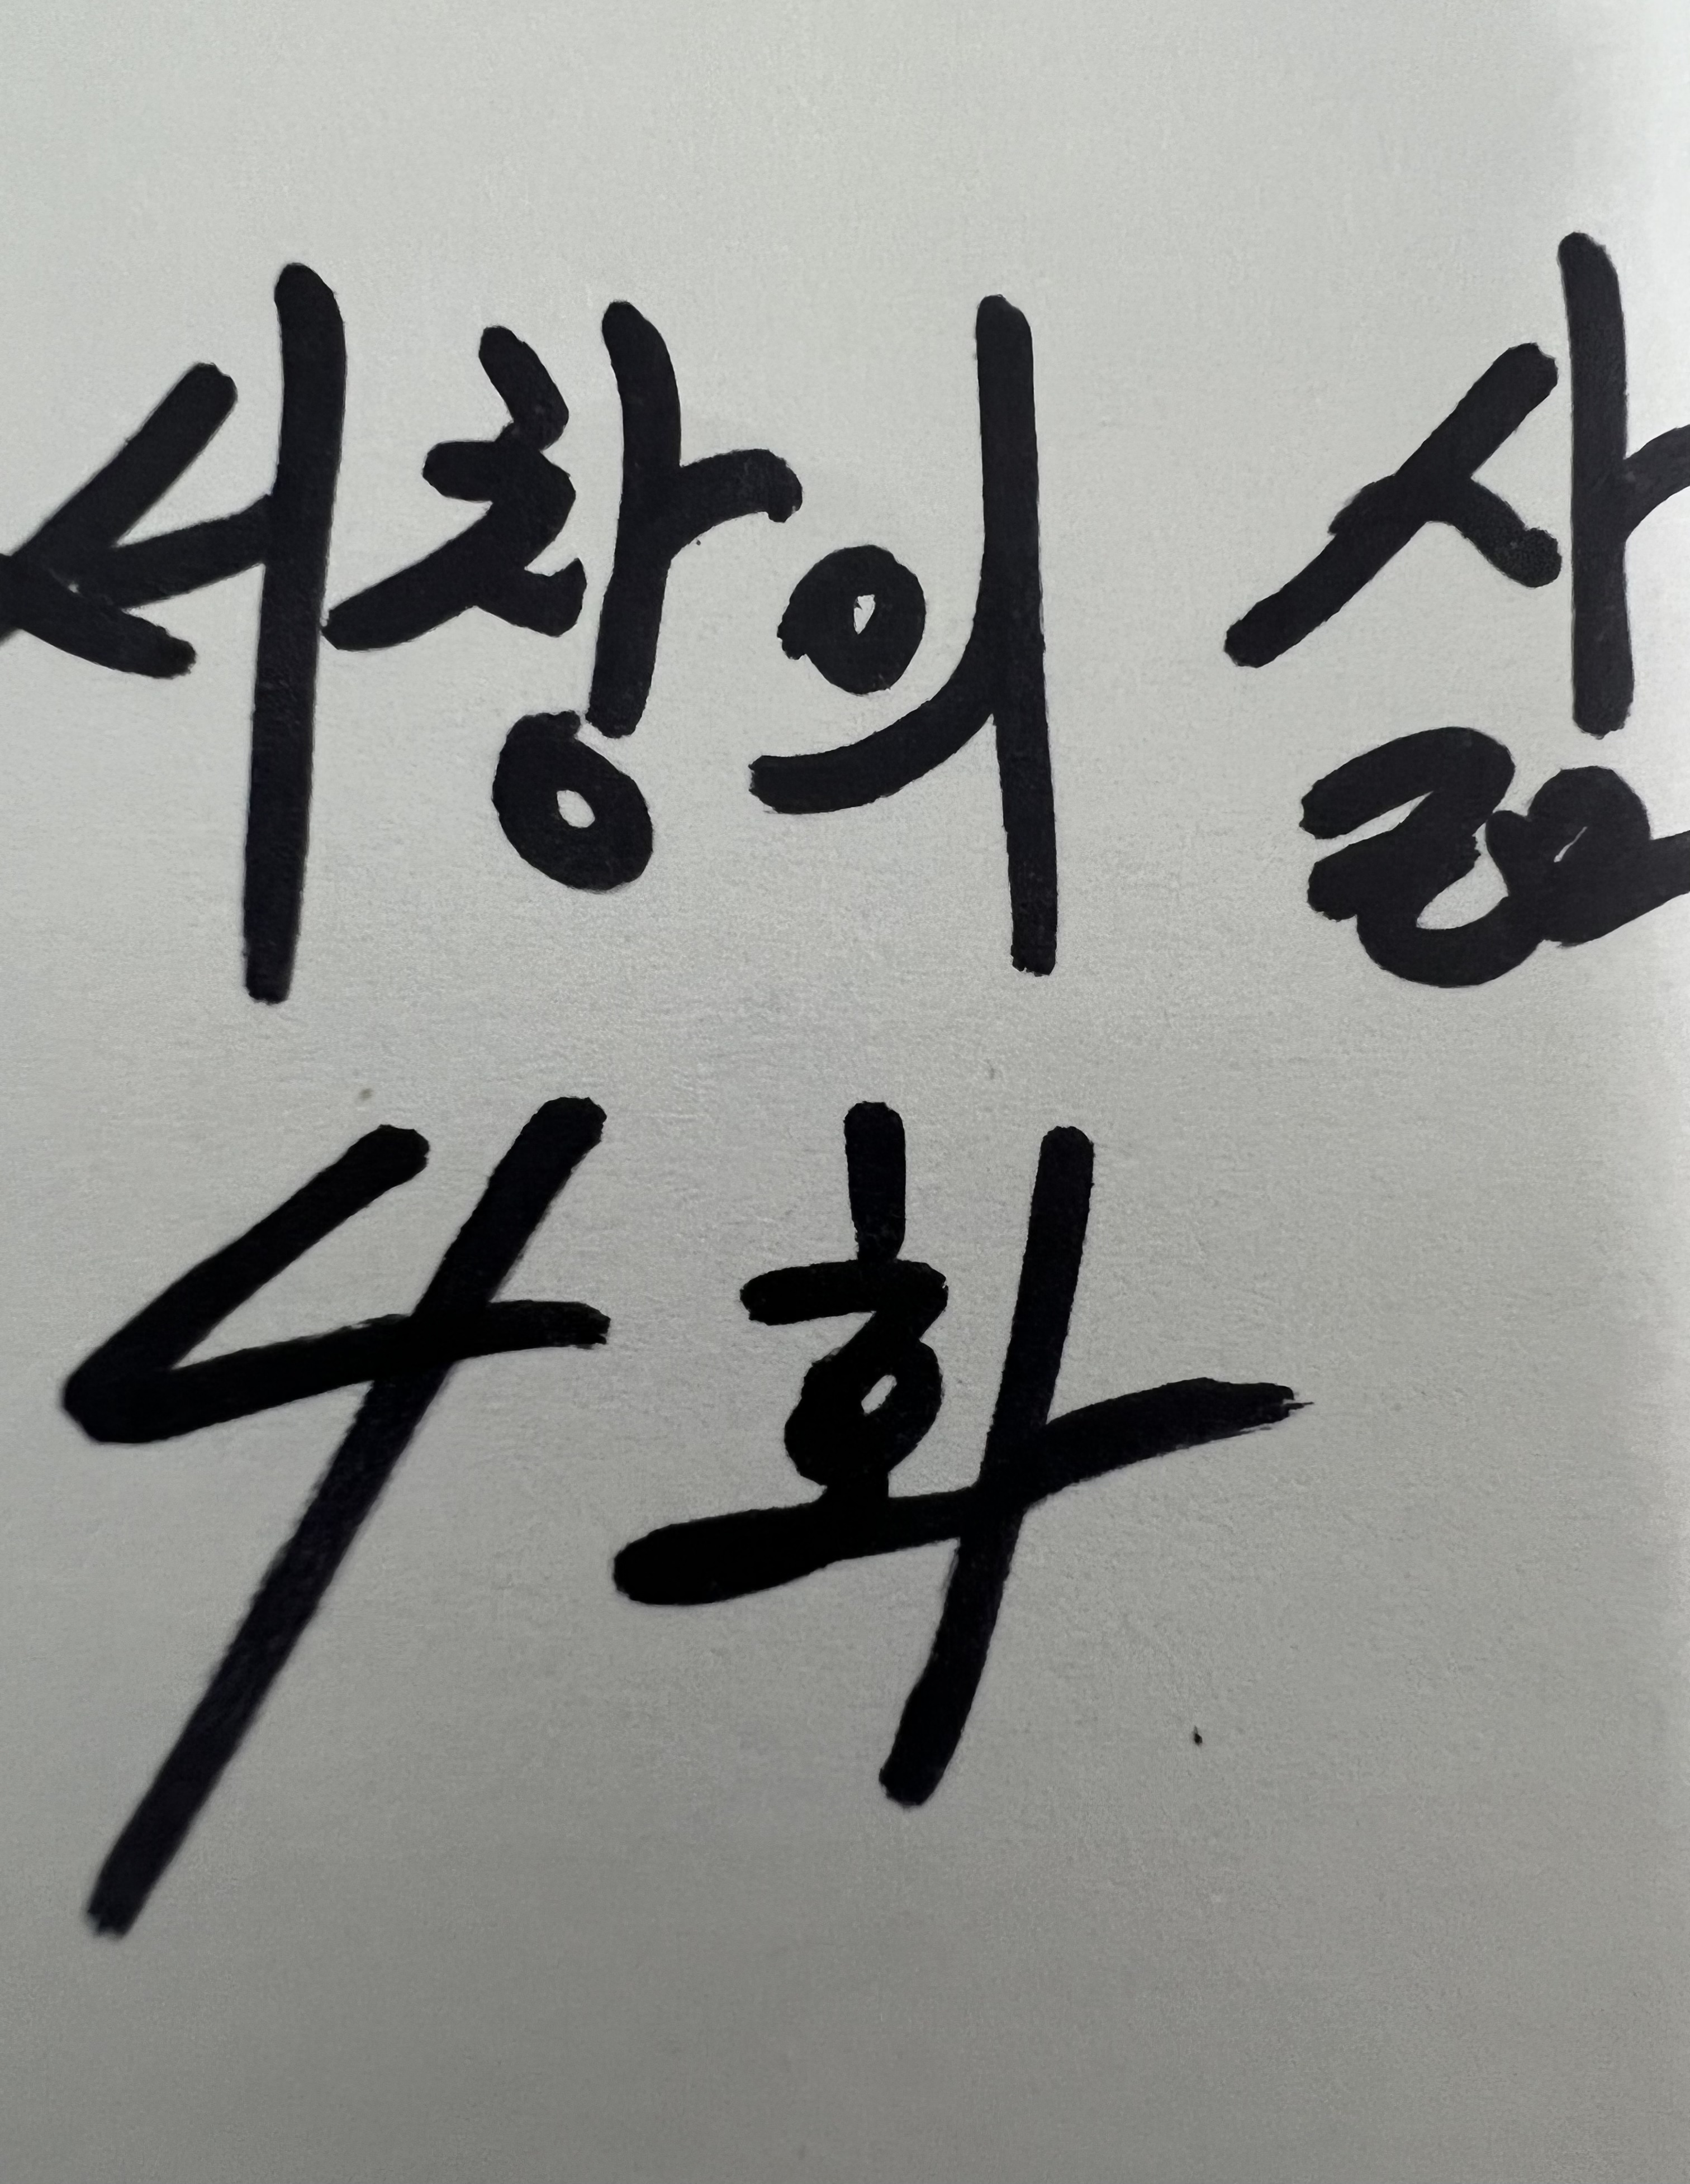 서창의 삶
4화